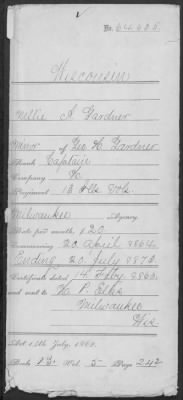 No. 64605
Wisconsin
Nellie A Gardner
Minor of Geo. H. Gardner
Rank Captain
Company H
Regiment 13 Ills Vols.
Milwaukee Agency
Rate per month $20
Commencing 20 April 1864
Ending 20. July 1873.
Certificate dated 14 Feby 1866
and sent to H. P. Elks
Milwaukee
Wis
Act 14th July, 1862.
Book B Vol. 5 Page 242